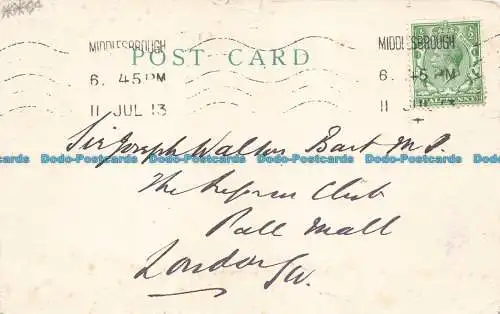 MIDDLESBROUGH
6. 45 PM
11 JUL 13
POST CARD
MIDDLESBROUGH
6. 45 PM
11 JUL 13
Sir Joseph Walton Bart M.P.
The Reform Club
Pall Mall
London SW.
Dodo-Postcards Dodo-Postcards Dodo-Postcards Dodo-Postcards Dodo-Postcards